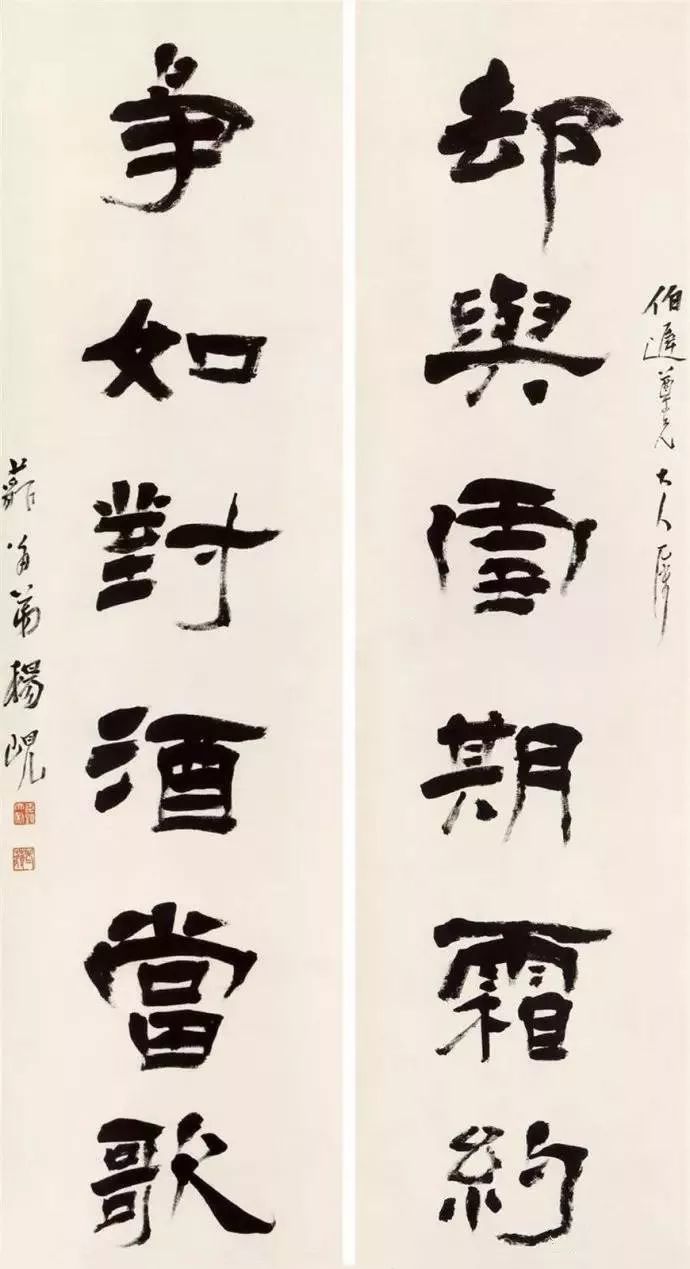 伯遲尊兄大人
却與雪期霜約
争如對酒當歌
藐翁弟楊峴